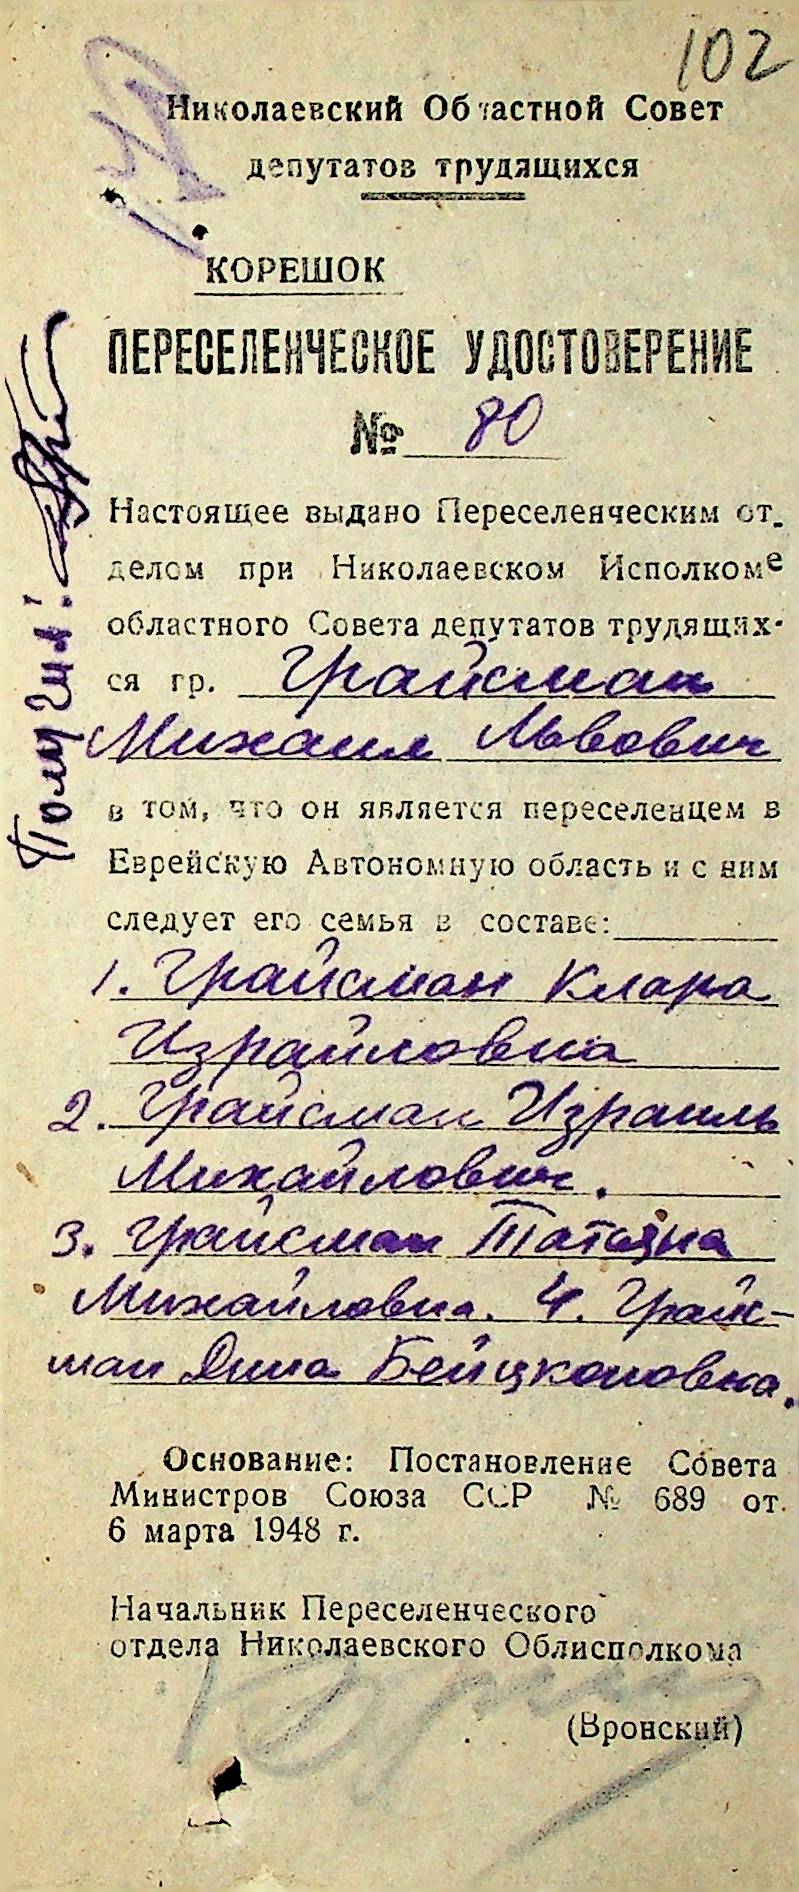 102
Николаевский Областной Совет
депутатов трудящихся
КОРЕШОК
ПЕРЕСЕЛЕНЧЕСКОЕ УДОСТОВЕРЕНИЕ
№ 80
Настоящее выдано Переселенческим от-
делом при Николаевском Исполкоме
областного Совета депутатов трудящих-
ся гр. Грайсман
Михаил Львович
в том, что он является переселенцем в
Еврейскую Автономную область и с ним
следует его семья в составе:
1. Грайсман Клара
Израйловна
2. Грайсман Израиль
Михайлович.
3. Грайсман Татьяна
Михайловна. 4. Грайс-
ман Дина Бейцконовна.
Основание: Постановление Совета
Министров Союза ССР № 689 от
6 марта 1948 г.
Начальник Переселенческого
отдела Николаевского Облисполкома
(Вронский)
Получил: